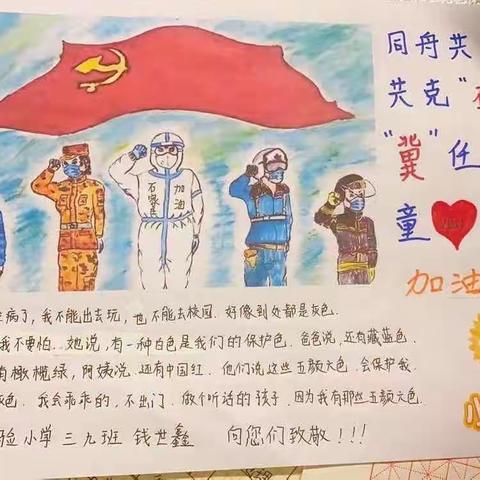 同舟共
共克“
“冀”任
童
加油
石家庄 加油
生病了，我不能出去玩，也不能去校园．好像到处都是灰色．
我不要怕．她说，有一种白色是我们的保护色．爸爸说，还有藏蓝色．
有橄榄绿，阿姨说．还有中国红．他们说这些五颜六色．会保护我．
灰色．我会乖乖的，不出门．做个听话的孩子．因为我有那些五颜六色．
验小学三九班 钱世鑫 向您们致敬！！！